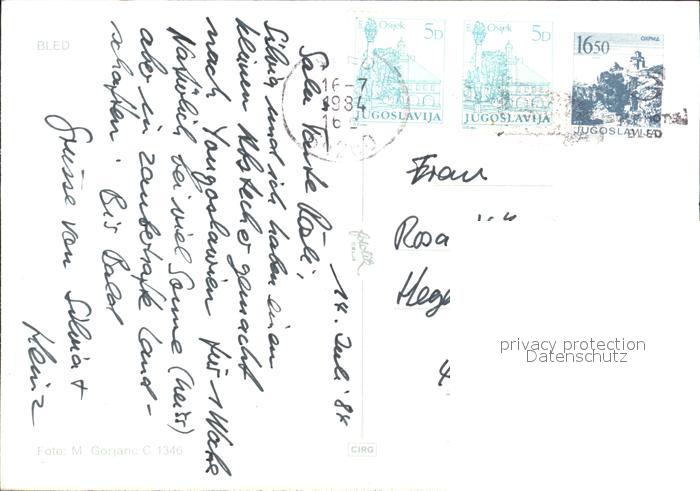 BLED
14. Juli '84
Salu Tante Rösli,
Silvia und ich haben einen
kleinen Abstecher gemacht
nach Yougoslawien für 1 Woche
Natürlich bei viel Sonne (heiss)
aber in zauberhafte Land-
schaften. Bis Bald
Grüsse von Silvia +
Heinz
Foto: M. Gorjanc C 1346
fotolik
celje
CIRG
Osijek 5D
JUGOSLAVIJA
Osijek 5D
JUGOSLAVIJA
16,50 OHRID
JUGOSLAVIJA
16-7
1984
16
BLED
Frau
Rosa
Hege
4
privacy protection
Datenschutz